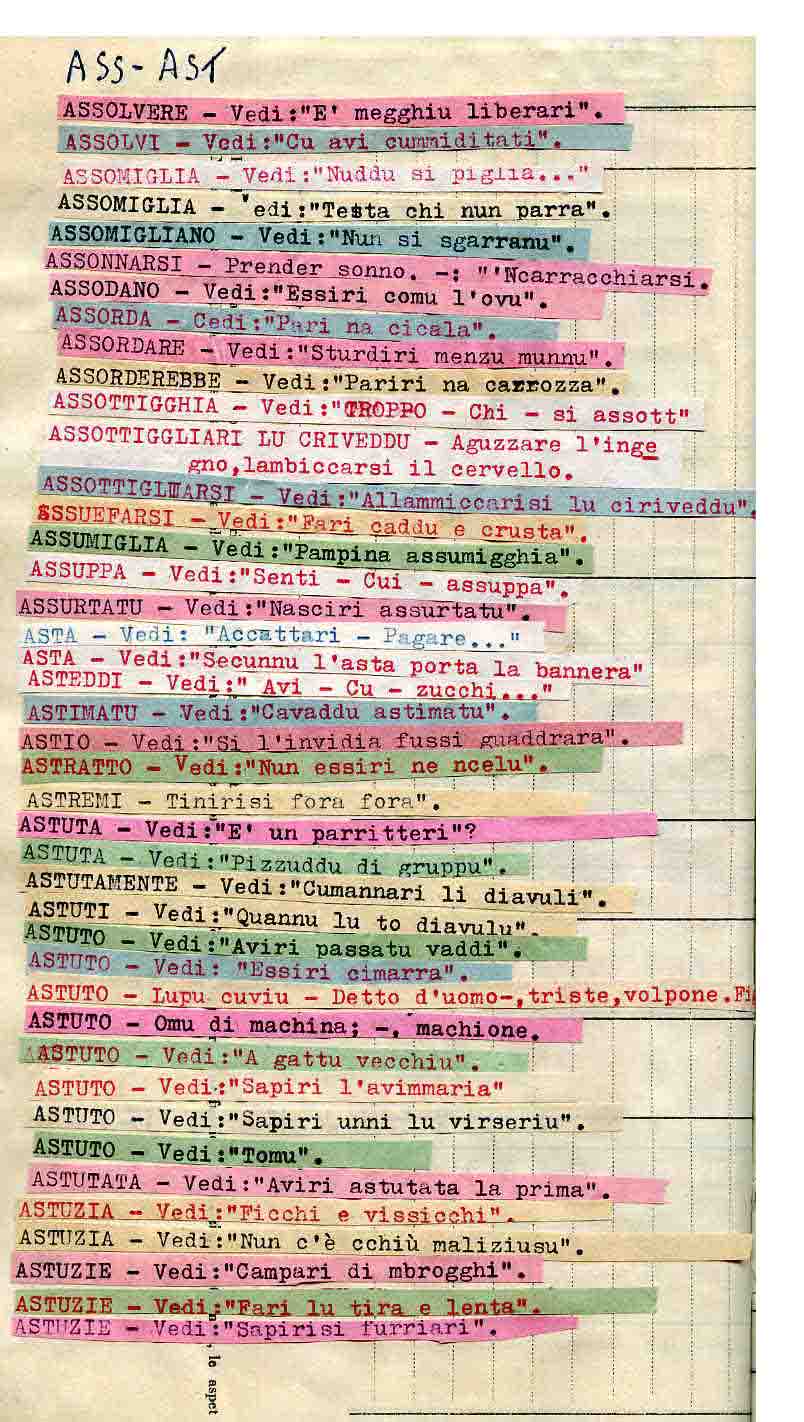 ASS- AST
ASSOLVERE - Vedi:"E' megghiu liberari".
ASSOLVI - Vedi:"Cu avi cummiditati".
ASSOMIGLIA - Vedi:"Nuddu si piglia..."
ASSOMIGLIA - 'edi:"Testa chi nun parra".
ASSOMIGLIANO - Vedi:"Nun si sgarranu".
ASSONNARSI - Prender sonno. -: "'Ncarracchiarsi.
ASSODANO - Vedi:"Essiri comu l'ovu".
ASSORDA - Cedi:"Pari na cicala".
ASSORDARE - Vedi:"Sturdiri menzu munnu".
ASSORDEREBBE - Vedi:"Pariri na carrozza".
ASSOTTIGGHIA - Vedi:"TROPPO - Chi - si assott"
ASSOTTIGGLIARI LU CRIVEDDU - Aguzzare l'inge
gno,lambiccarsi il cervello.
ASSOTTIGLIARSI - Vedi:"Allammiccarisi lu ciriveddu".
ASSUEFARSI - Vedi:"Fari caddu e crusta".
ASSUMIGLIA - Vedi:"Pampina assumigghia".
ASSUPPA - Vedi:"Senti - Cui - assuppa".
ASSURTATU - Vedi:"Nasciri assurtatu".
ASTA - Vedi: "Accattari - Pagare..."
ASTA - Vedi:"Secunnu l'asta porta la bannera"
ASTEDDI - Vedi:" Avi - Cu - zucchi..."
ASTIMATU - Vedi:"Cavaddu astimatu".
ASTIO - Vedi:"Si l'invidia fussi guaddrara".
ASTRATTO - Vedi:"Nun essiri ne ncelu".
ASTREMI - Tinirisi fora fora".
ASTUTA - Vedi:"E' un parritteri"?
ASTUTA - Vedi:"Pizzuddu di gruppu".
ASTUTAMENTE - Vedi:"Cumannari li diavuli".
ASTUTI - Vedi:"Quannu lu to diavulu".
ASTUTO - Vedi:"Aviri passatu vaddi".
ASTUTO - Vedi: "Essiri cimarra".
ASTUTO - Lupu cuviu - Detto d'uomo-,triste,volpone.Fi
ASTUTO - Omu di machina; -, machione.
ASTUTO - Vedi:"A gattu vecchiu".
ASTUTO - Vedi:"Sapiri l'avimmaria"
ASTUTO - Vedi:"Sapiri unni lu virseriu".
ASTUTO - Vedi:"Tomu".
ASTUTATA - Vedi:"Aviri astutata la prima".
ASTUZIA - Vedi:"Ficchi e vissicchi".
ASTUZIA - Vedi:"Nun c'è cchiù maliziusu".
ASTUZIE - Vedi:"Campari di mbrogghi".
ASTUZIE - Vedi:"Fari lu tira e lenta".
ASTUZIE - Vedi:"Sapirisi furriari".
le aspet